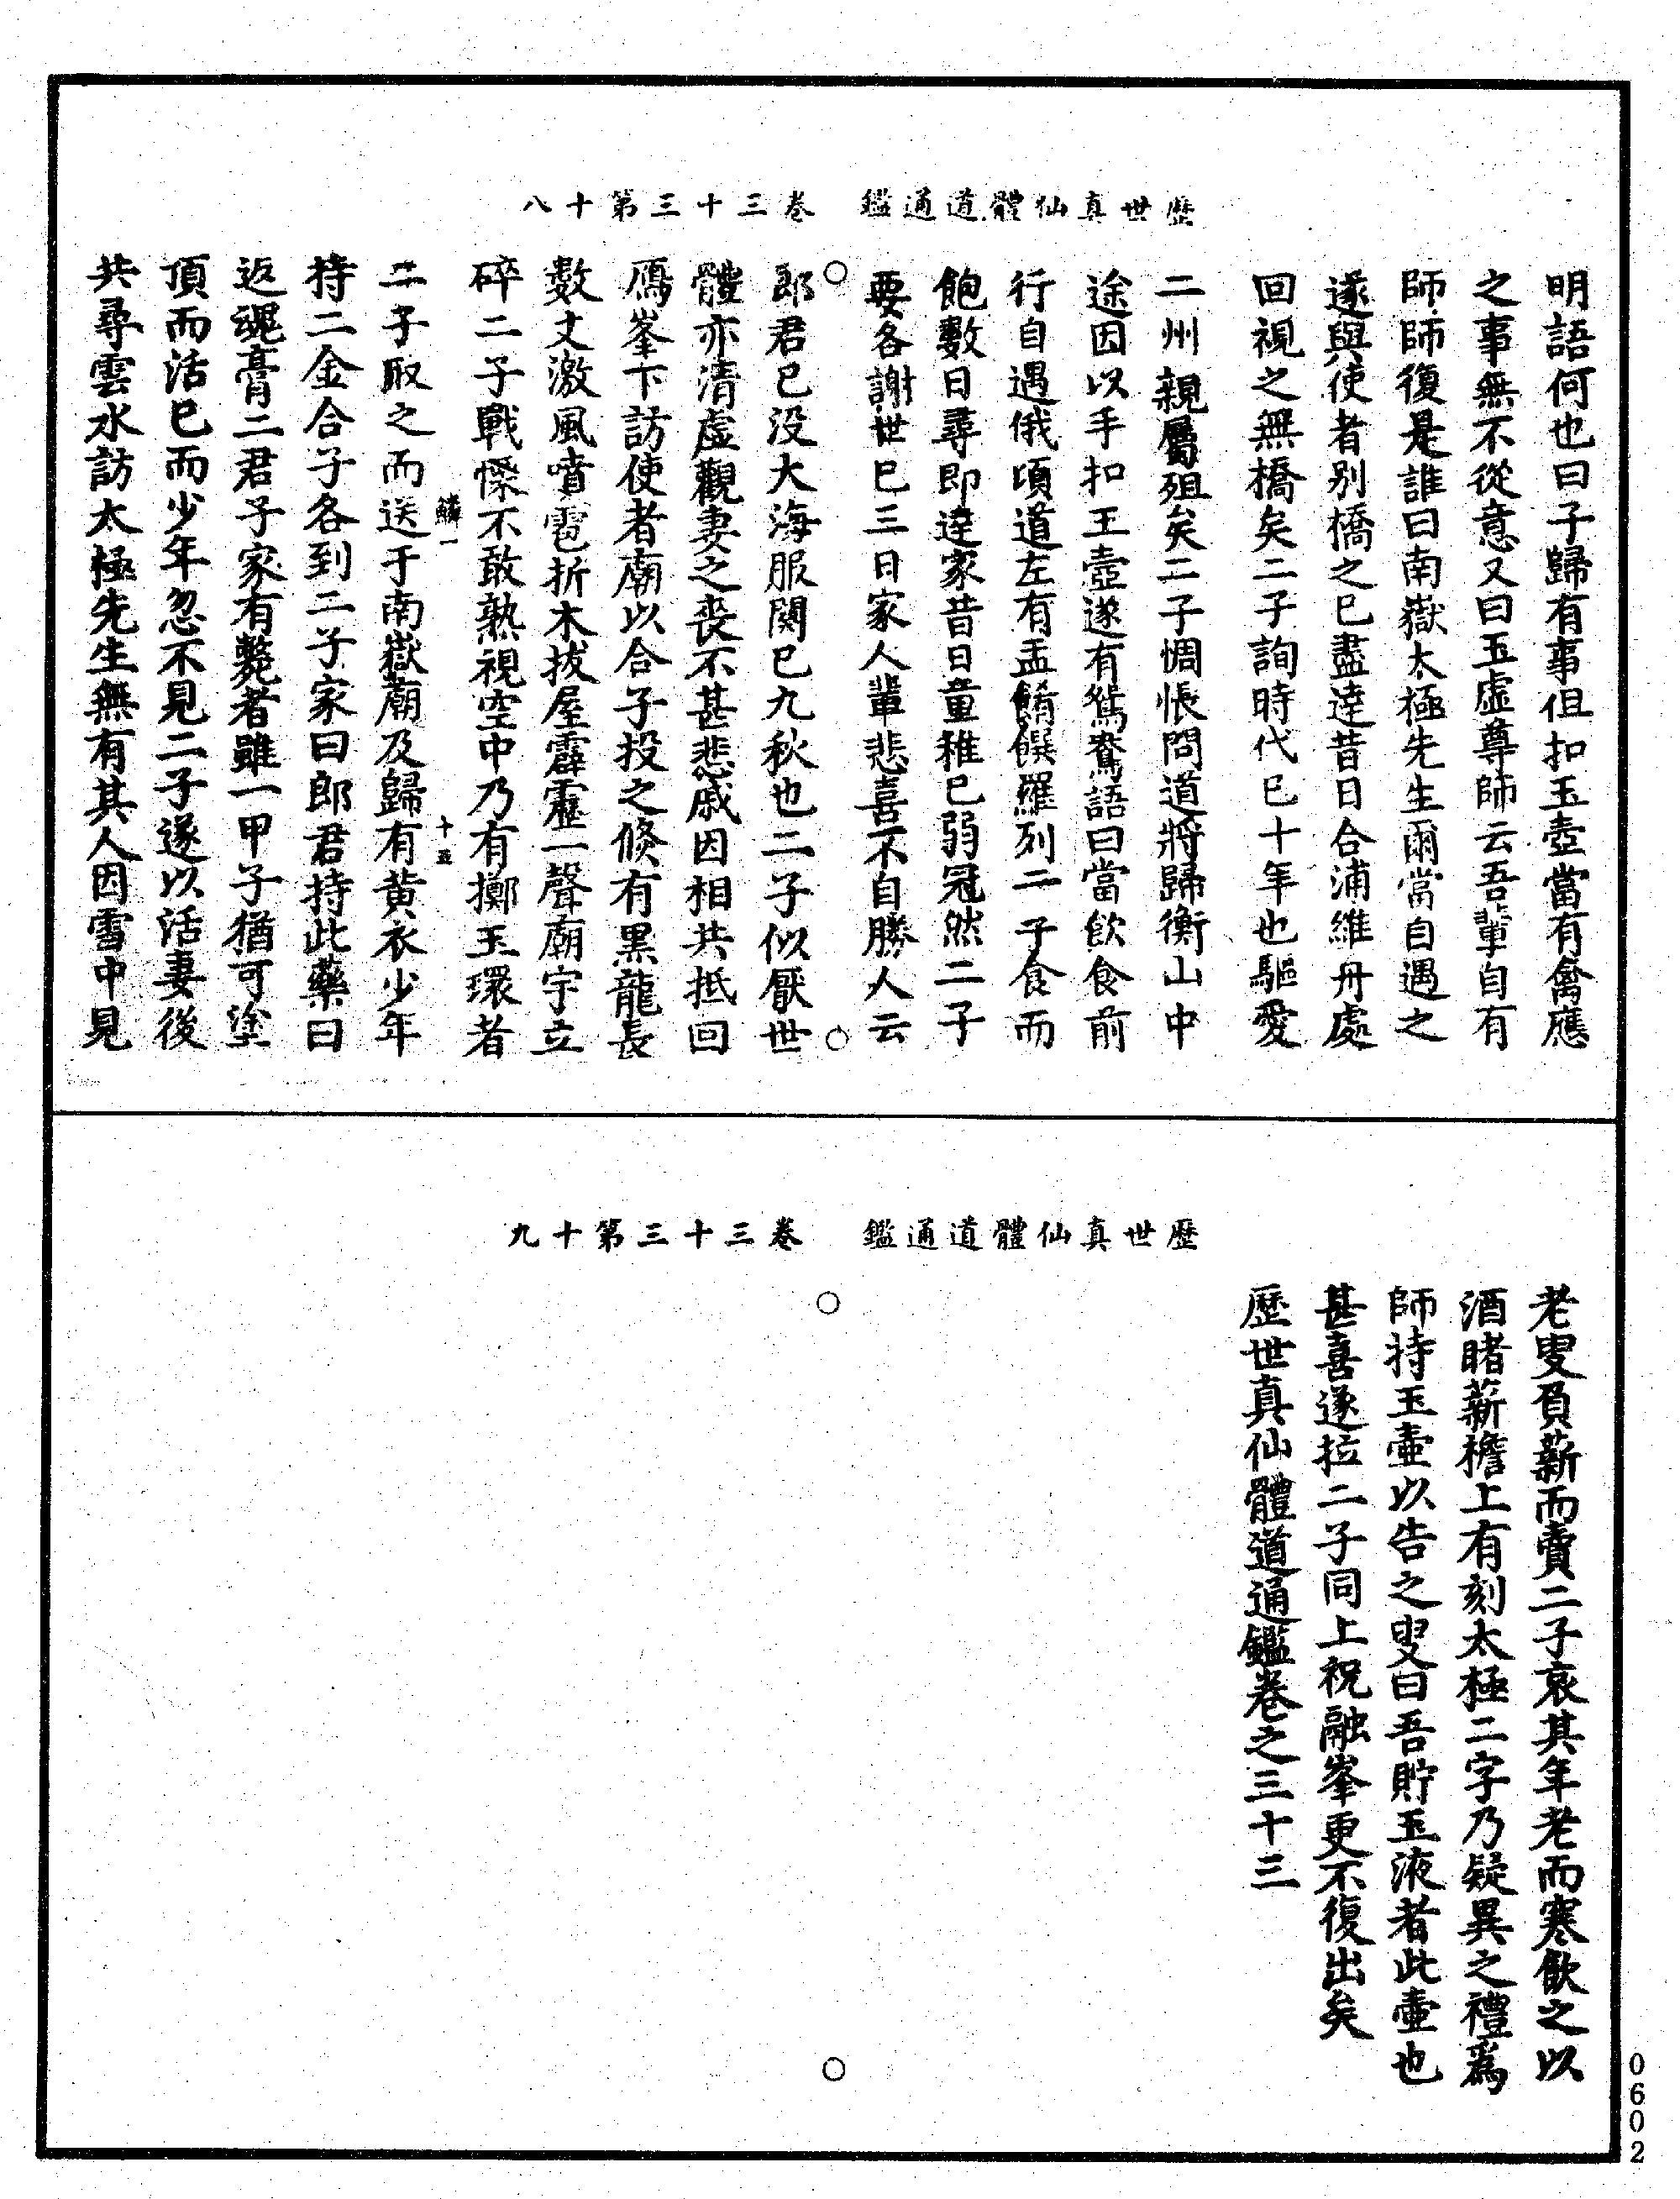 歷世真仙體道通鑑　卷三十三第十八
明語何也曰子歸有事但扣玉壺當有禽應
之事無不從意又曰玉虛尊師云吾輩自有
師師復是誰曰南嶽太極先生爾當自遇之
遂與使者别橋之巳盡達昔日合浦維舟處
回視之無橋矣二子詢時代巳十年也驅愛
二州親屬殂矣二子惆悵問道將歸衡山中
途因以手扣玉壺遂有鴛鴦語曰當飲食前
行自遇俄頃道左有盂餚饌羅列二子食而
飽數日尋即達家昔日童稚巳弱冠然二子
要各謝世巳三日家人輩悲喜不自勝人云
郎君巳没大海服闋巳九秋也二子似厭世
體亦清虛觀妻之喪不甚悲慼因相共抵回
鴈峯下訪使者廟以合子投之倐有黑龍長
數丈激風噴雹折木拔屋霹靂一聲廟宇立
碎二子戰慄不敢熟視空中乃有擲玉環者
鱗一　十五
二子取之而送于南嶽廟及歸有黄衣少年
持二金合子各到二子家曰郎君持此藥曰
返魂膏二君子家有斃者雖一甲子猶可塗
頂而活巳而少年忽不見二子遂以活妻後
共尋雲水訪太極先生無有其人因雪中見
歷世真仙體道通鑑　卷三十三第十九
老叟負薪而賣二子哀其年老而寒飲之以
酒睹薪檐上有刻太極二字乃疑異之禮爲
師持玉壷以告之叟曰吾貯玉液者此壷也
甚喜遂拉二子同上祝融峯更不復出矣
歷世真仙體道通鑑卷之三十三
0602